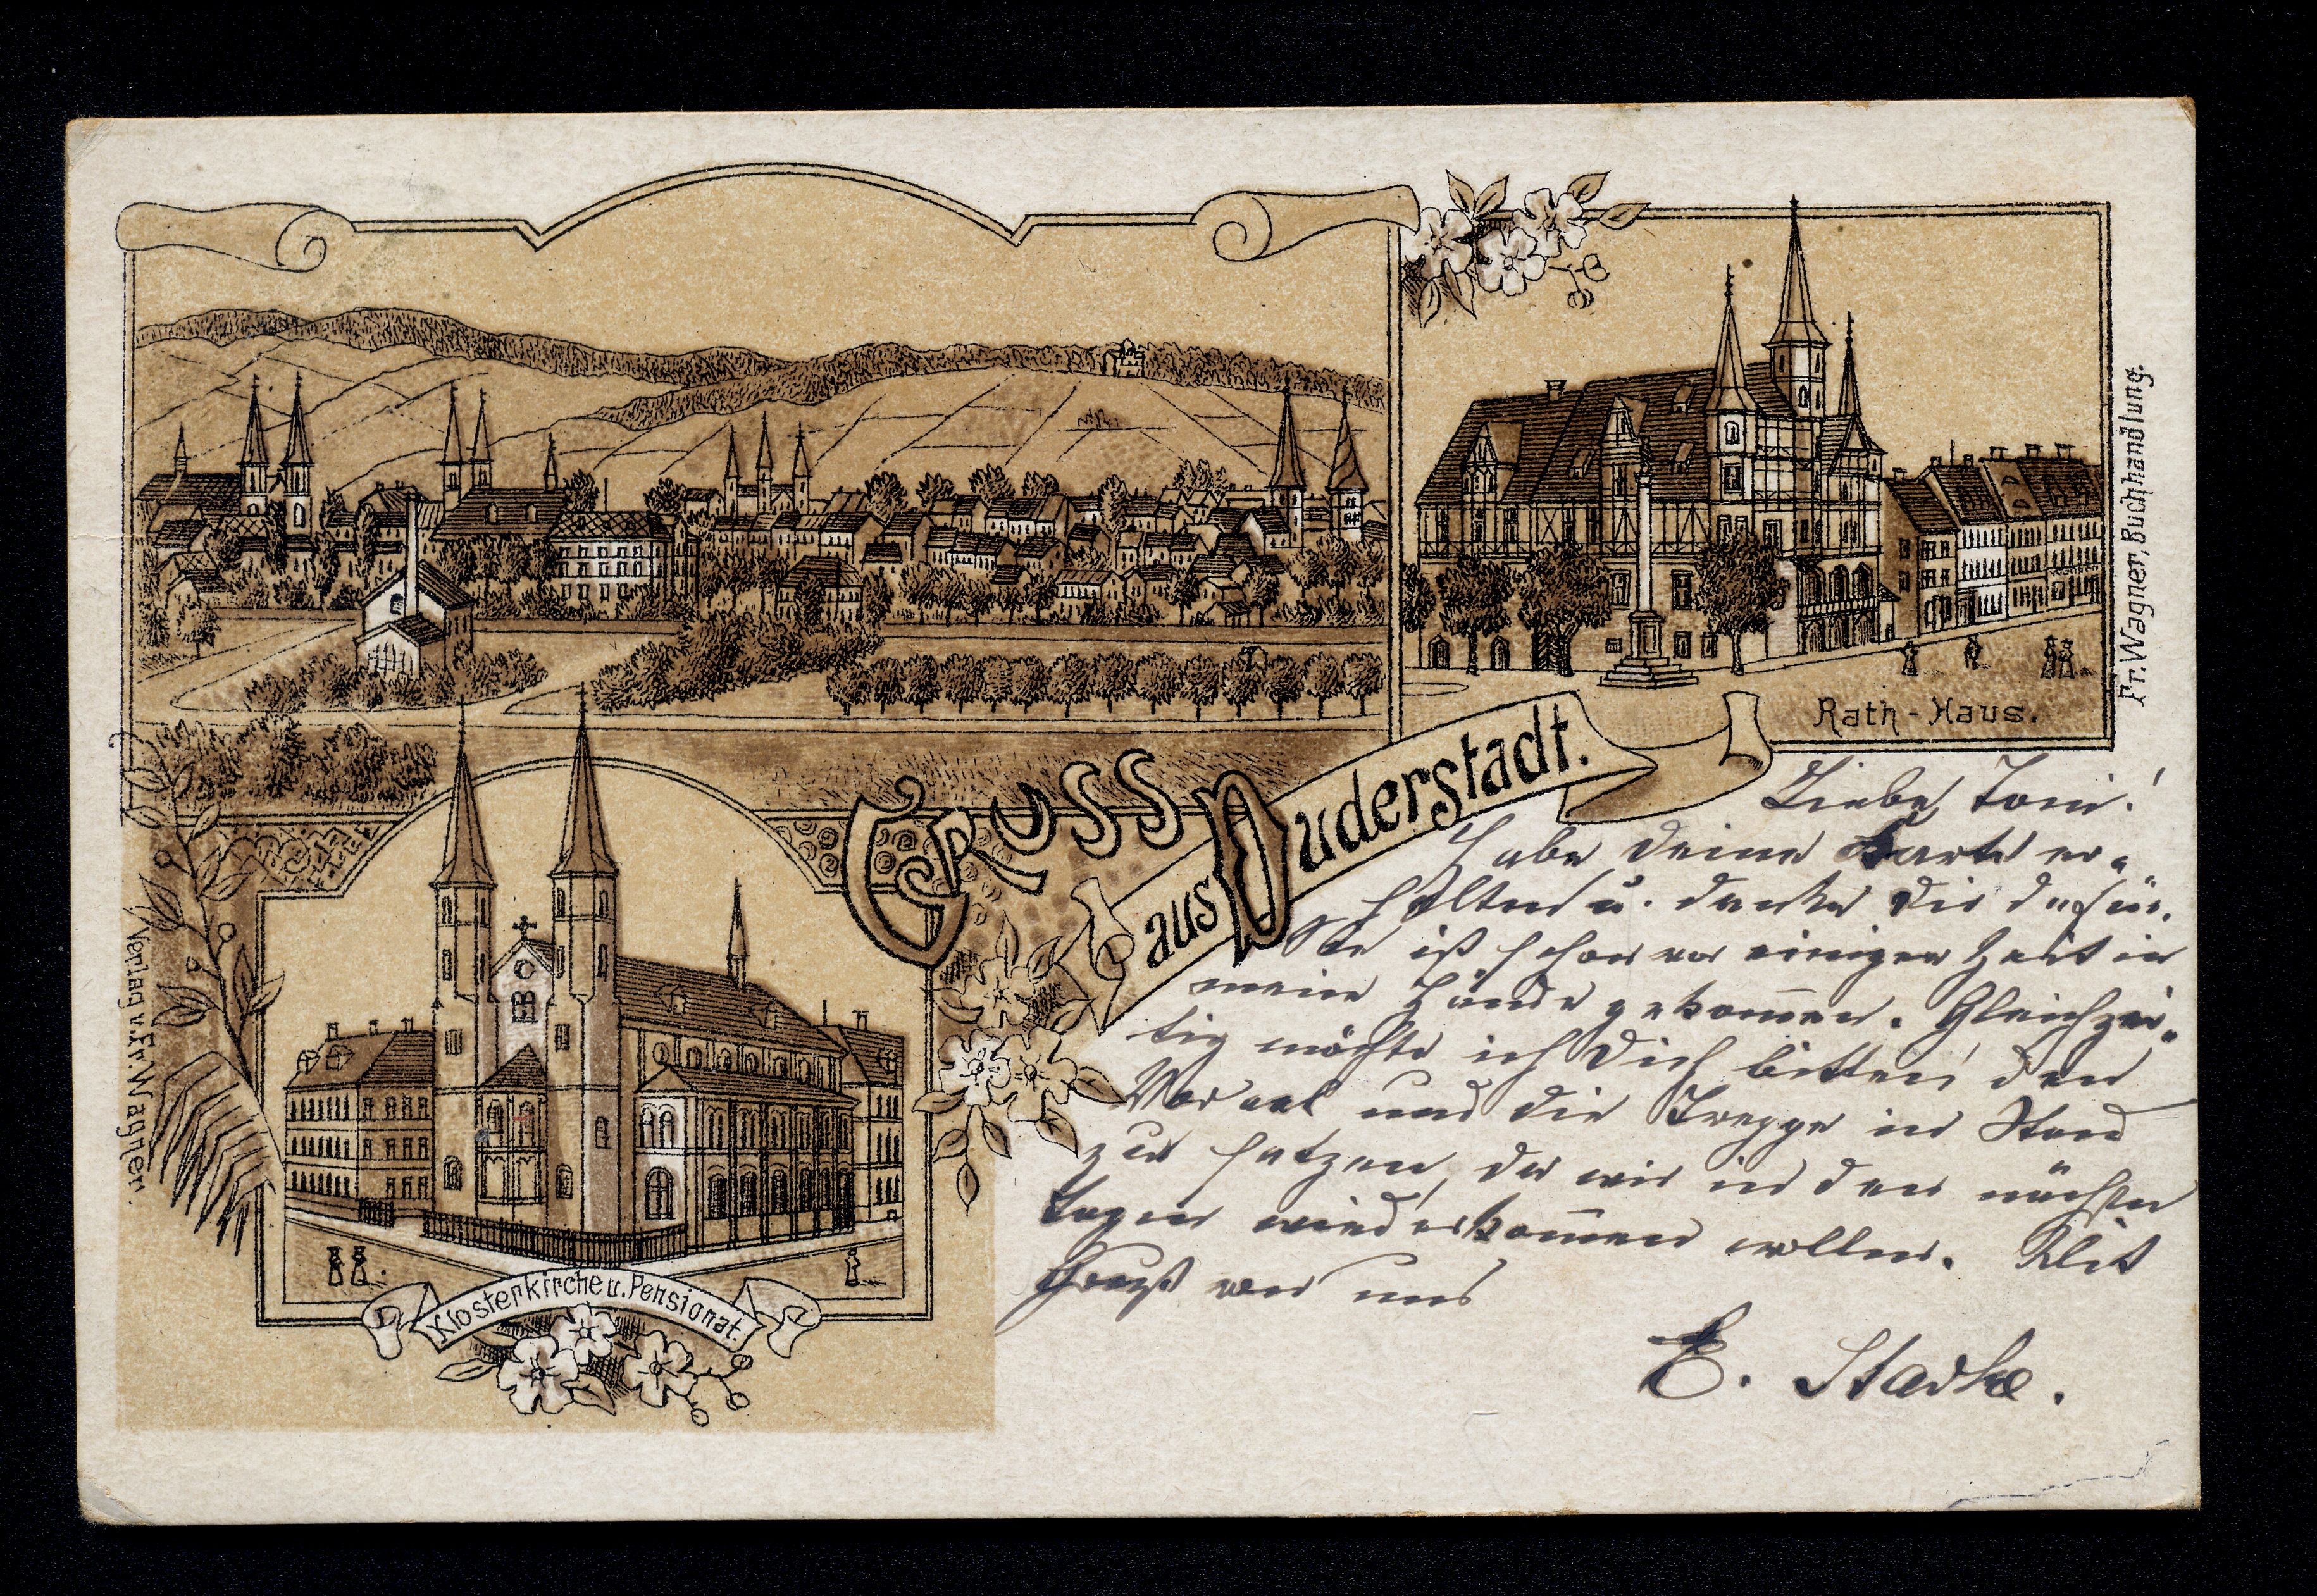 Rath-Haus.
Fr. Wagner, Buchhandlung.
GRUSS
aus Duderstadt.
Verlag v. Fr. Wagner.
Klosterkirche u. Pensionat.
Liebe Toni!
Habe deine Karte er-
halten u. danke dir dafür.
Sie ist schon vor einiger Zeit in
meine Hände gekom̅en. Gleichzei-
tig möchte ich Dich bitten den
Vorsaal und die Treppe in Stand
zu setzen, da wir in den nächsten
Tagen wiederkom̅en wollen. Mit
Gruß von uns
E. Starke.